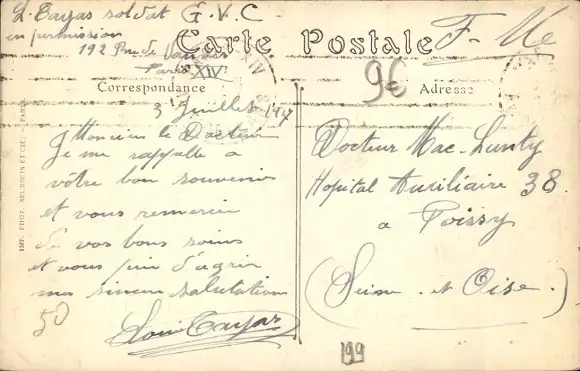 L. Tayas soldat G. V. C -
en permission
192 Rue de
Paris XIV
Carte Postale
F - Me
9€
Correspondance
Adresse
3 Juillet 1917
Monsieur le Docteur
Je me rappelle a
vôtre bon souvenir
et vous remercie
de vos bons soins
et vous prie d'agrér
mes sincere salutation
Louis Tayas
50
Docteur Mac-Lunty
Hopital Auxiliaire 38.
a Poissy
(Seine - et Oise.)
199
IMP. PHOT. NEURDEIN ET CIE. - PARIS